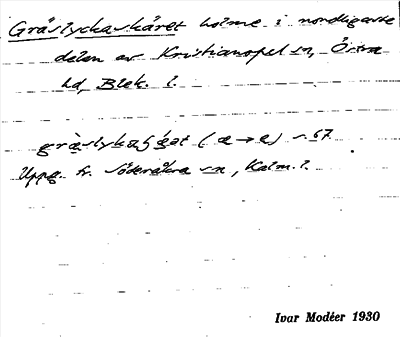 Gräslyckaskäret holme i nordligaste
delen av Kristianopel sn, Östra
hd, Blek. l.
(æ→e) s. 67.
Uppg. fr. Söderåkra sn, Kalm. l.
Ivar Modéer 1930